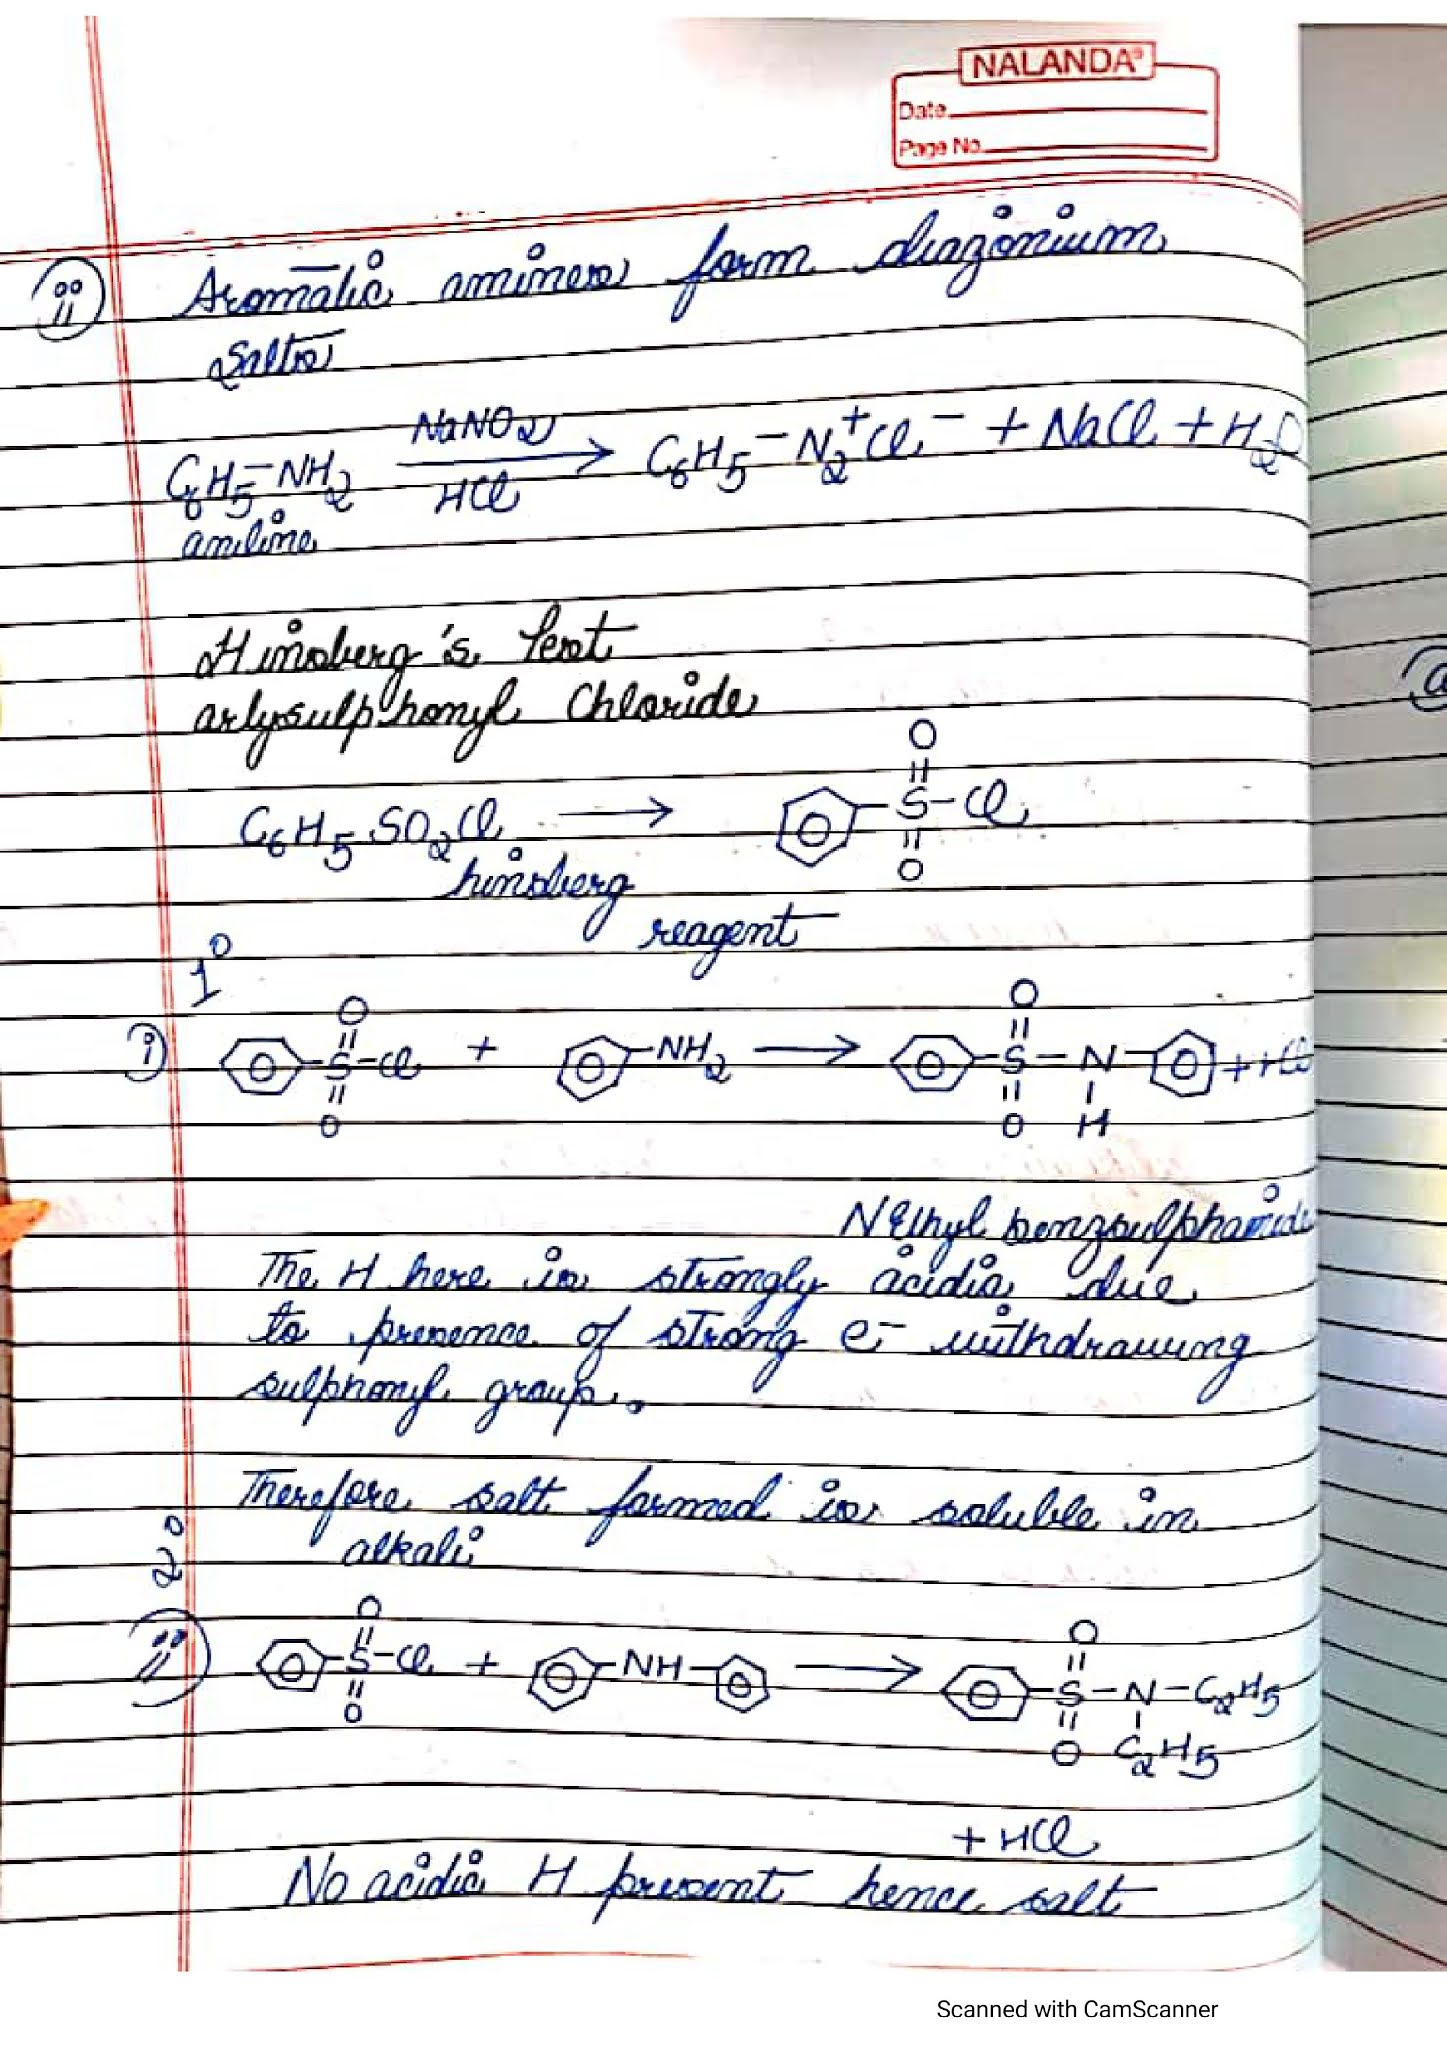 NALANDA
Date
Page No.
ii Aromatic amines form diazonium
salts
NaNO2
C6H5-NH2 → C6H5-N2+Cl- + NaCl + H2O
HCl
aniline
Hinsberg's Test
arlysulphonyl Chloride
O
C6H5SO2Cl → S-Cl
O
hinsberg
reagent
1°
O O
i) S-Cl + NH2 → S-N + HCl
O O H
N Ethyl benzsulphamide
The H here is strongly acidic due
to presence of strong e- withdrawing
sulphonyl group.
Therefore salt formed is soluble in
alkali
2°
O O
ii S-Cl + NH → S-N-C2H5
O O C2H5
+ HCl
No acidic H present hence salt
Scanned with CamScanner